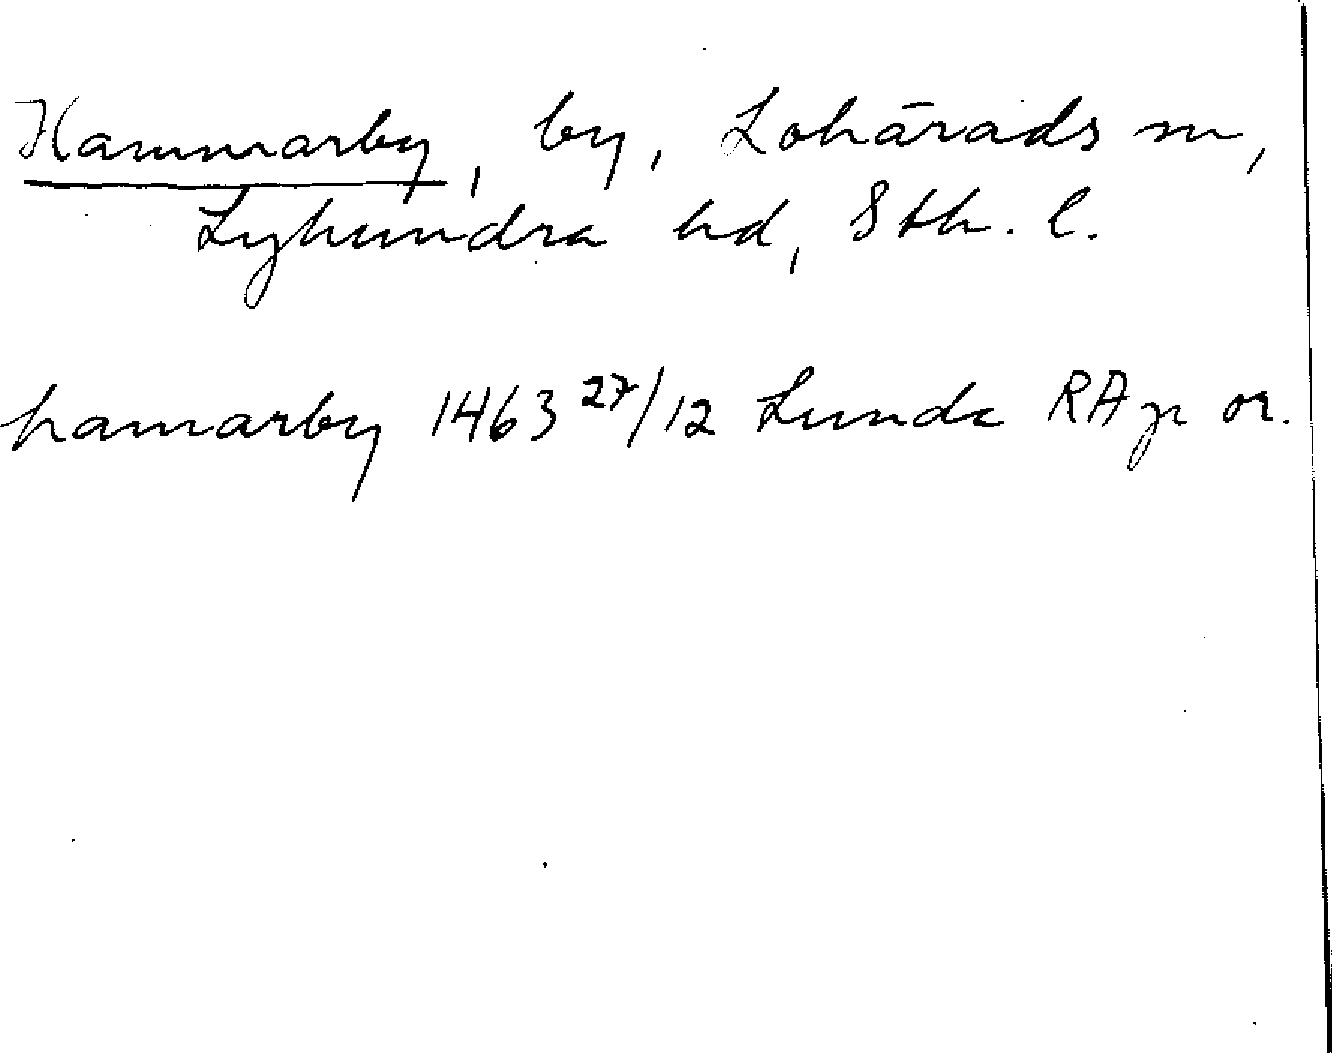 Hammarby, by, Lohärads sn,
Lyhundra hd, Sth. l.
hamarby 1463 27/12 Lunda RAp or.